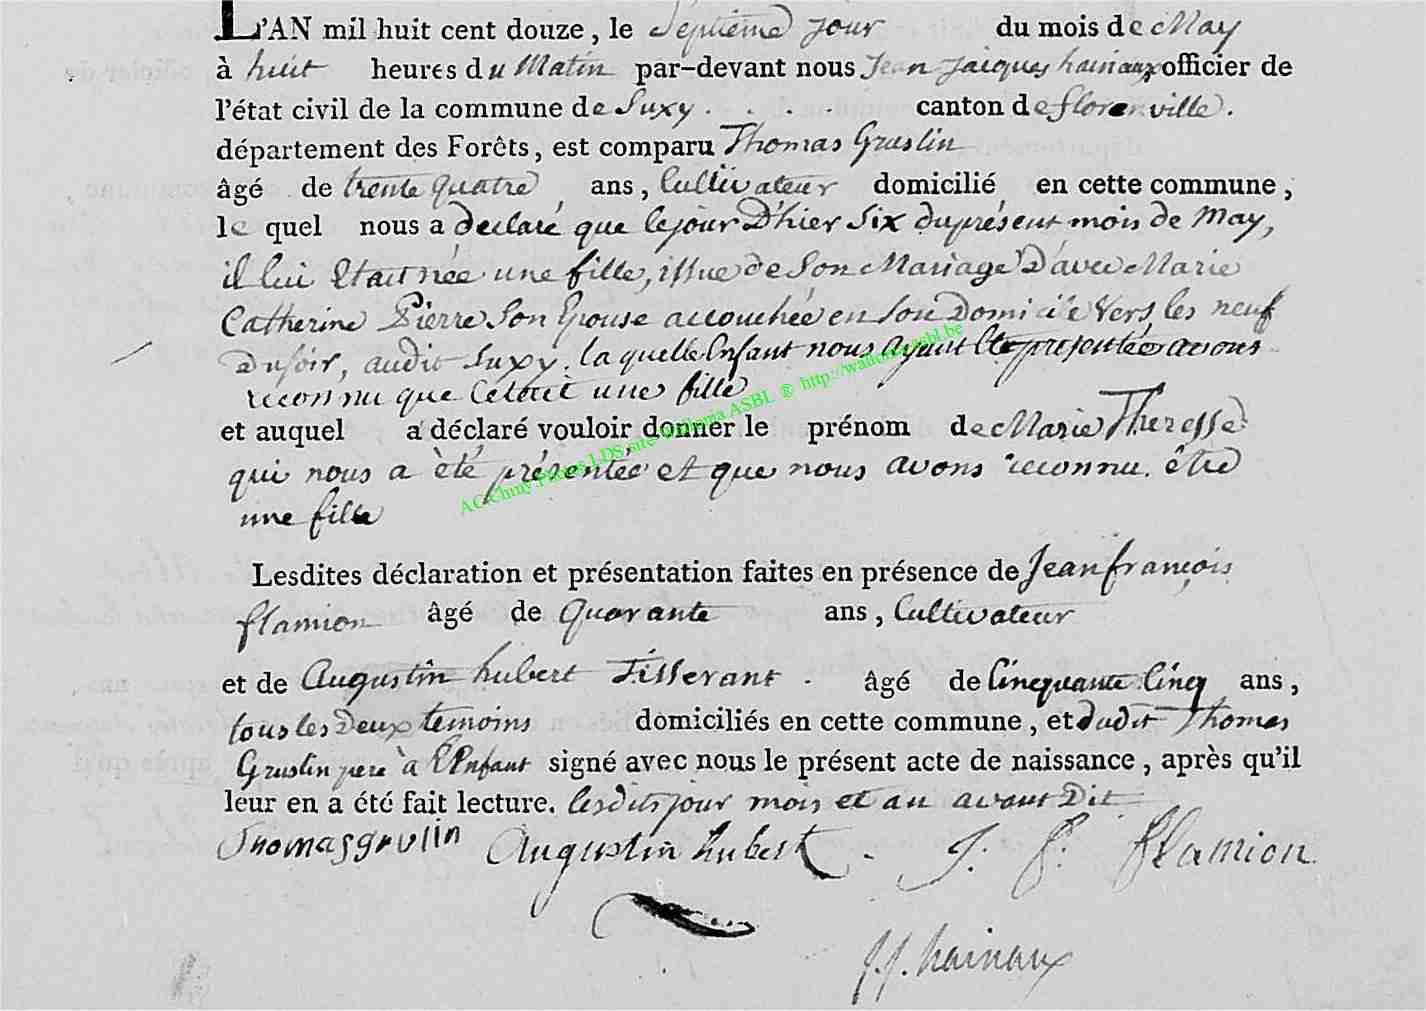 L'AN mil huit cent douze, le Septième jour du mois de May
à huit heures du Matin par-devant nous Jean jacques hainaux officier de
l'état civil de la commune de Suxy . . . . canton de florenville.
département des Forêts, est comparu Thomas Gruslin
âgé de trente quatre ans, Cultivateur domicilié en cette commune,
le quel nous a declaré que le jour D'hier Six du présent mois de May,
il lui Etait née une fille, issue de Son Mariage D'avec Marie
Catherine Pierre Son Epouse accouchée en Son Domicile Vers les neuf
Du soir, audit Suxy. la quelle Enfant nous ayant Eté présentée avons
reconnu que C'etait une fille
et auquel a déclaré vouloir donner le prénom de Marie Theresse
qui nous a èté présentée et que nous avons reconnu être
une fille
AG Chiny Photos LDS site Wallonia ASBL ® http://wallonia-asbl.be
Lesdites déclaration et présentation faites en présence de Jean françois
flamion âgé de Quarante ans, Cultivateur
et de Augustin hubert Tisserant . âgé de Cinquante Cinq ans,
tous les Deux temoins domiciliés en cette commune, et dudit Thomas
Gruslin pere à l'Enfant signé avec nous le présent acte de naissance, après qu'il
leur en a été fait lecture. lesdits jour mois et an avant Dit
Thomas gruslin Augustin hubert J. f. flamion
j. j. hainaux